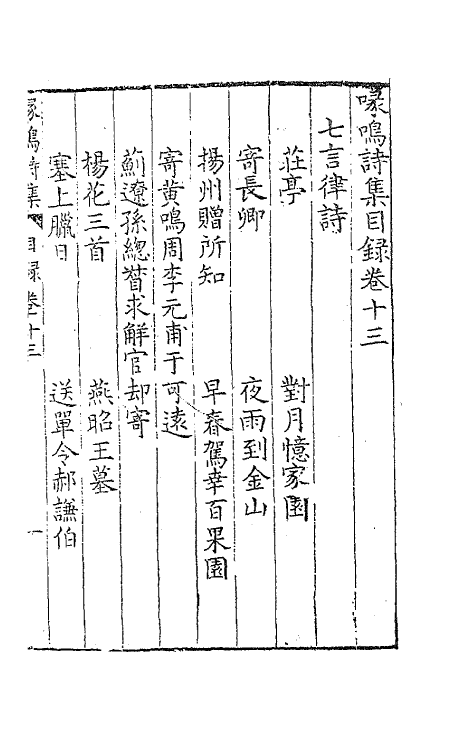 喙鳴詩集目録卷十三
七言律詩
莊亭　對月憶家園
寄長卿　夜雨到金山
揚州贈所知　早春駕幸百果園
寄黄鳴周李元甫于可遠
薊遼孫總督求觧官却寄
楊花三首　燕昭王墓
塞上臘日　送單令郝謙伯
喙鳴詩集　目録卷十三　一